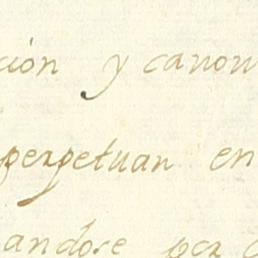 ción y canon
perpetuan en
andose por